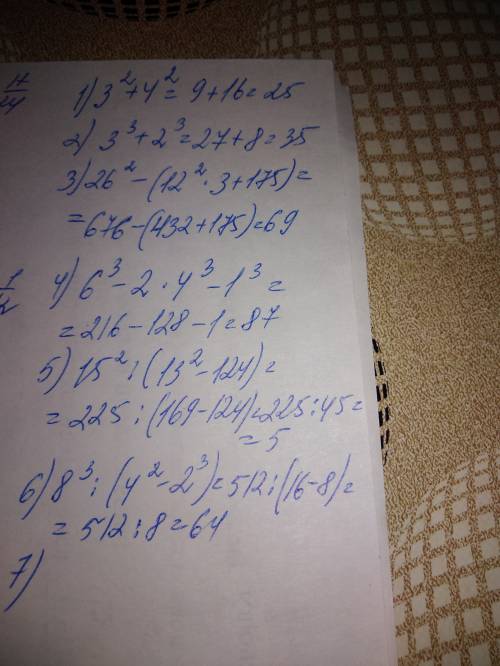 1) 3² + 4² = 9 + 16 = 25
2) 3³ + 2³ = 27 + 8 = 35
3) 26² - (12² · 3 + 175) =
= 676 - (432 + 175) = 69
4) 6³ - 2 · 4³ - 1³ =
= 216 - 128 - 1 = 87
5) 15² : (13² - 124) =
= 225 : (169 - 124) = 225 : 45 =
= 5
6) 8³ : (4² - 2³) = 512 : (16 - 8) =
= 512 : 8 = 64
7)